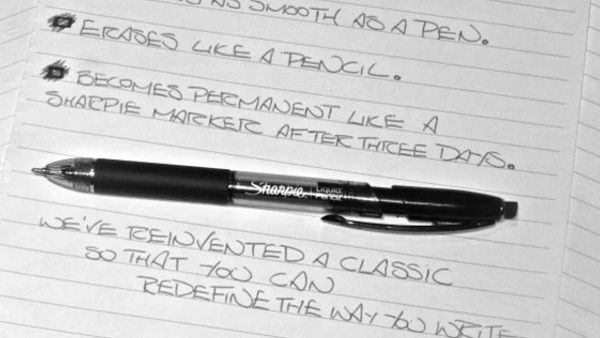 AS SMOOTH AS A PEN.
ERASES LIKE A PENCIL.
BECOMES PERMANENT LIKE A
SHARPIE MARKER AFTER THREE DAYS.
Sharpie. Liquid
Pencil
WE'VE REINVENTED A CLASSIC
SO THAT YOU CAN
REDEFINE THE WAY YOU WRITE